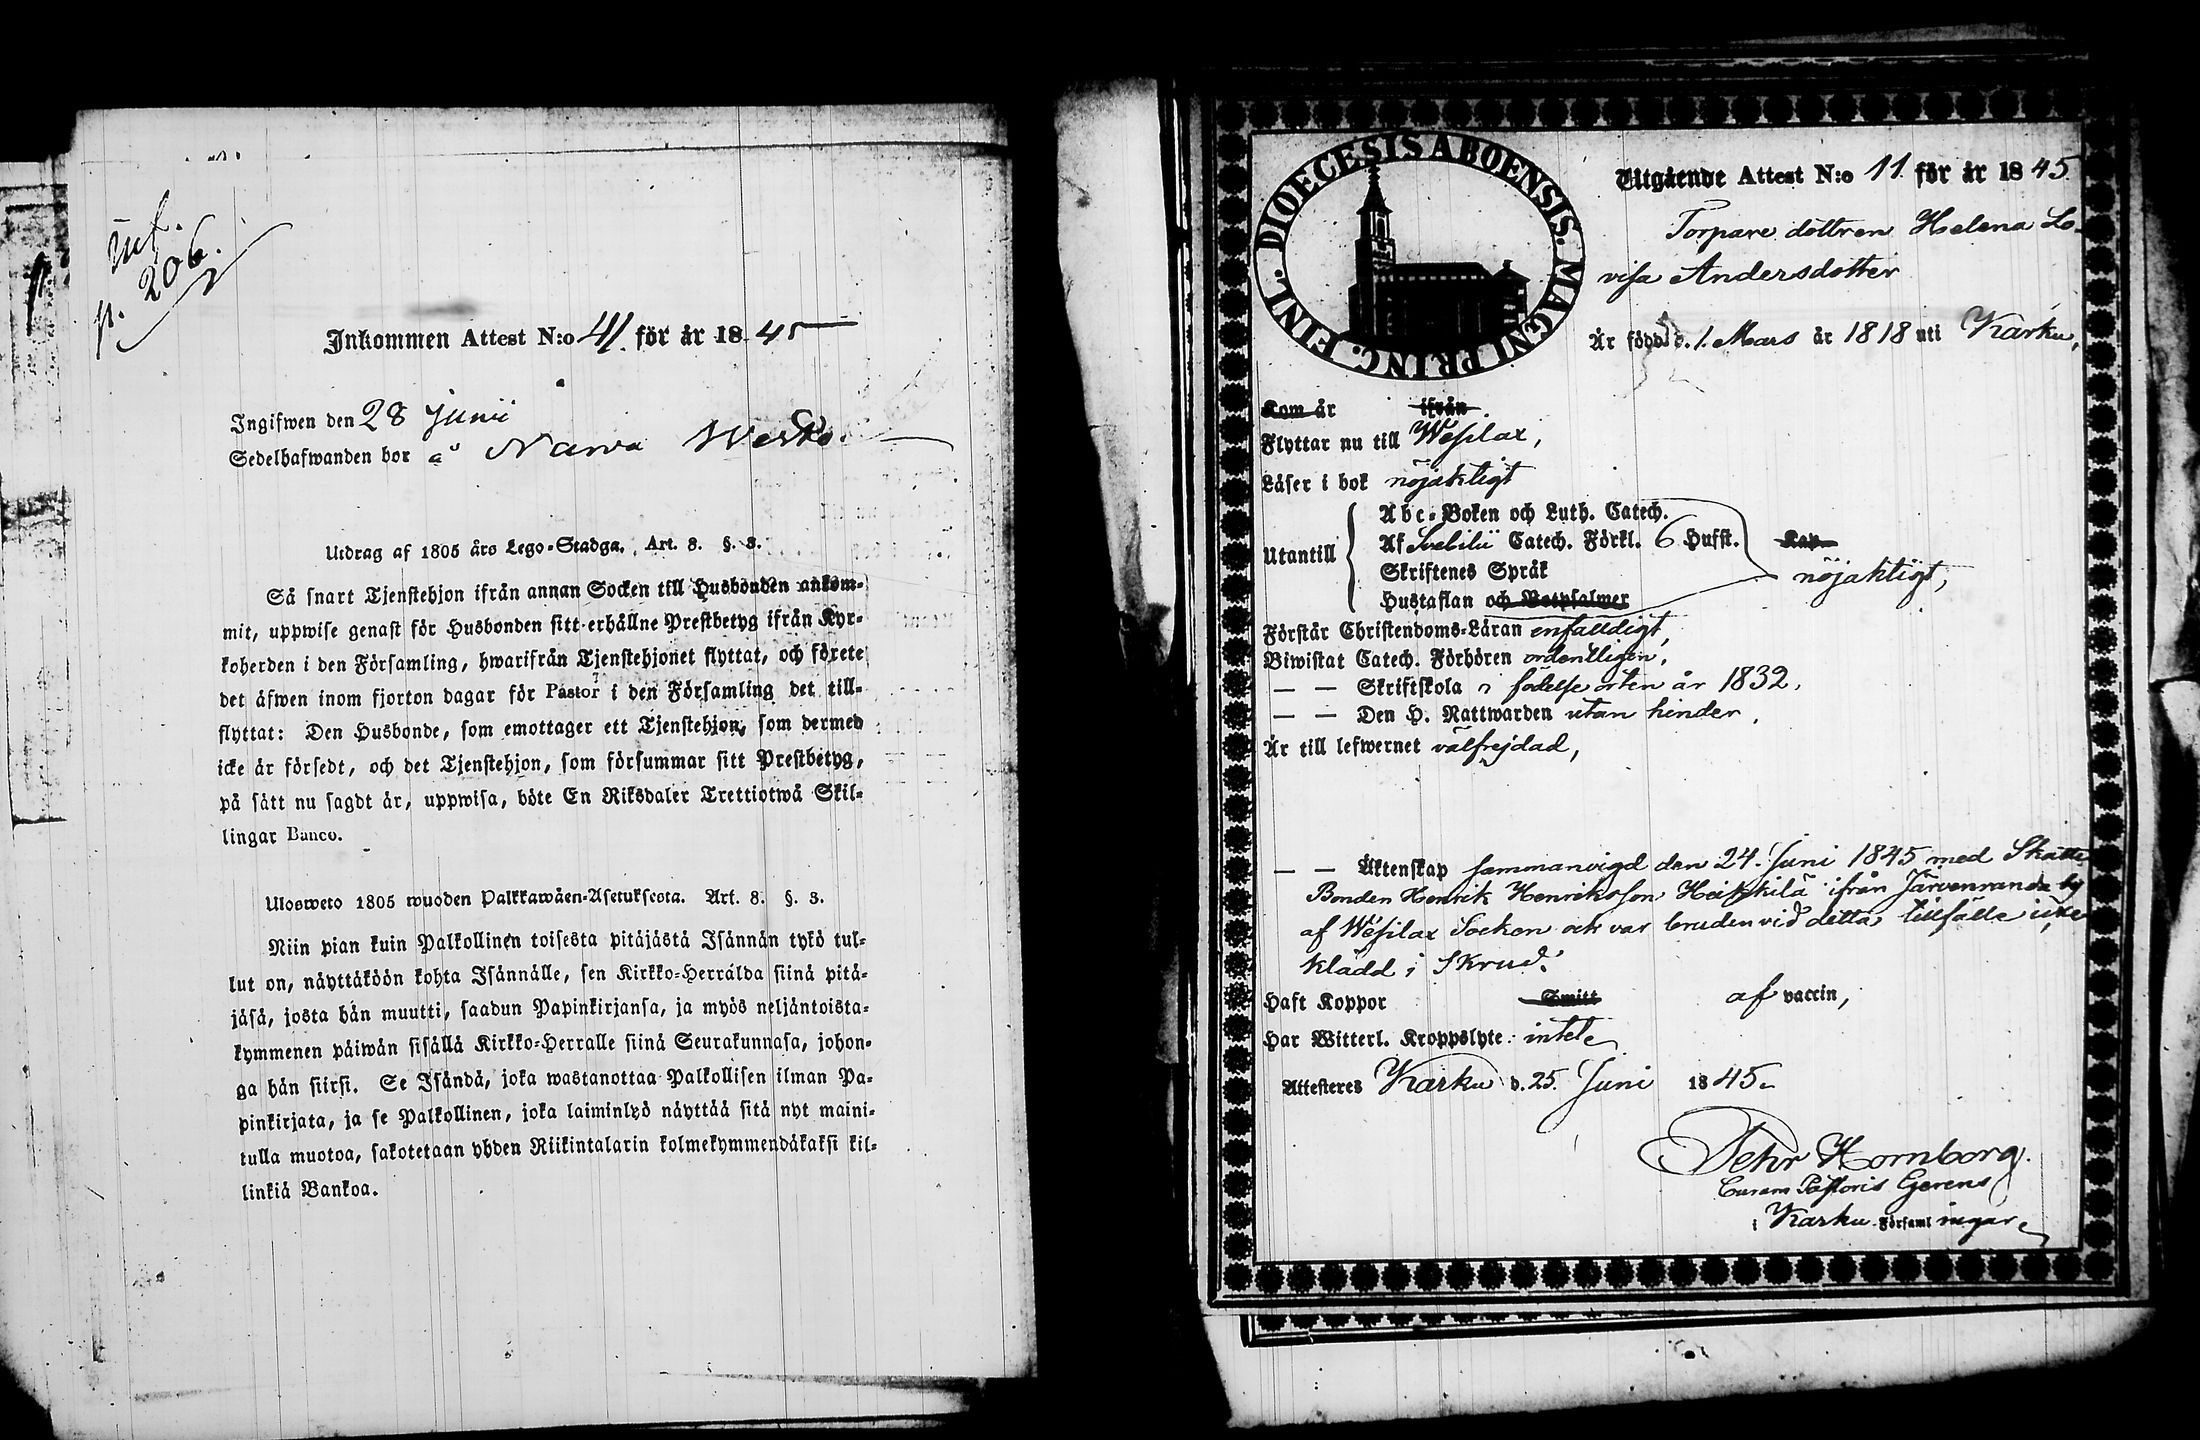 Inf.
p. 206.
Inkommen Attest N:o 41. för år 1845
Ingifwen den 28 Junii
Sedelhafwanden bor å Narva Wesko.
Utdrag af 1805 års Lego-Stadga. Art. 8. §. 3.
Så snart Tjenstehjon ifrån annan Socken till Husbonden ankom-
mit, uppwise genast för Husbonden sitt erhållne Prestbetyg ifrån Kyr-
koherden i den Församling, hwarifrån Tjenstehjonet flyttat, och förete
det äfwen inom fjorton dagar för Pastor i den Församling det till-
flyttat: Den Husbonde, som emottager ett Tjenstehjon, som dermed
icke är försedt, och det Tjenstehjon, som försummar sitt Prestbetyg,
på sätt nu sagdt är, uppwisa, böte En Riksdaler Trettiotwå Skil-
lingar Banco.
Ulosweto 1805 wuoden Palkkawäen-Asetuksesta. Art. 8. §. 3.
Niin pian kuin Palkollinen toisesta pitäjästä Isännän tykö tul-
lut on, näyttäköön kohta Isännälle, sen Kirkko-Herralda siinä pitä-
jäsä, josta hän muutti, saadun Papinkirjansa, ja myös neljäntoista-
kymmenen päiwän sisällä Kirkko-Herralle siinä Seurakunnasa, johon-
ga hän siirsi. Se Isändä, joka wastanottaa Palkollisen ilman Pa-
pinkirjata, ja se Palkollinen, joka laiminlyö näyttää sitä nyt maini-
tulla muotoa, sakotetaan yhden Riikintalarin kolmekymmendäkaksi kil-
linkiä Bankoa.
DIOECESIS ABOENSIS. MAGNI PRINC. FINL.
Utgående Attest N:o 11 för år 1845
Torpare dottren Helena Lo-
visa Andersdotter
Är född d. 1. Mars år 1818 uti Karku,
Kom år ifrån
Flyttar nu till Wesilax,
Läser i bok nöjaktigt
Utantill
Abc-Boken och Luth. Catech.
Af Svebilii Catech. Förkl. 6 Hufst. Kap
Skriftenes Språk
nöjaktigt,
Hustaflan och Botpsalmer
Förstår Christendoms-Läran enfaldigt,
Biwistat Catech. Förhören ordentligen,
— — Skriftskola i födelse orten år 1832,
— — Den H. Nattwarden utan hinder,
Är till lefwernet välfrejdad,
— — Äktenskap sammanvigd den 24. Juni 1845 med Skatte
Bonden Henrik Henriksson Heikkilä ifrån Järvenranda by
af Wesilax Socken och var bruden vid detta tillfälle icke
klädd i Skrud.
Haft Koppor Smitt af vaccin,
Har Witterl. Kroppslyte intet
Attesteres Karku d. 25. Juni 1845
Pehr Hornborg.
Curam Pastoris Gerens
i Karku Församlingar